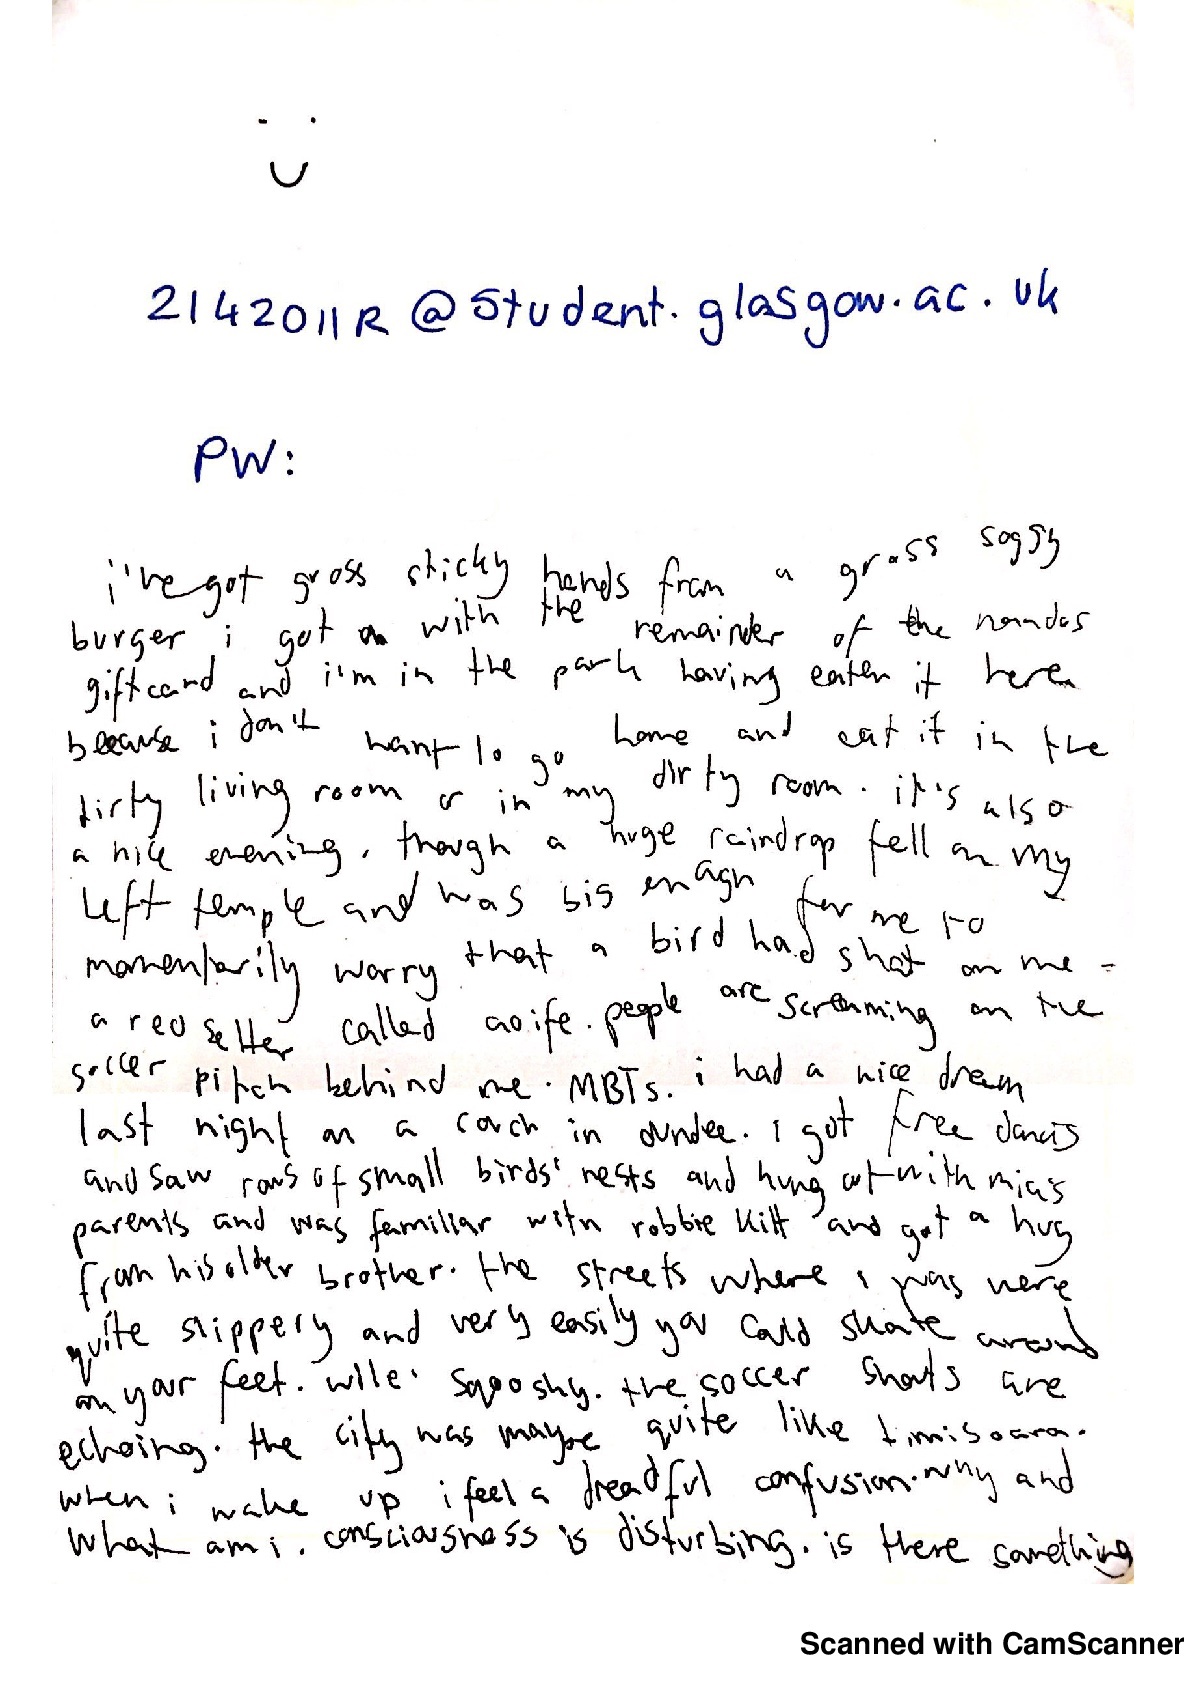 2142011R @ Student.glasgow.ac.uk
PW:
i've got gross sticky hands from a gross soggy
burger i got with the remainder of the nandos
giftcard and i'm in the park having eaten it here
because i don't want to go home and eat it in the
dirty living room or in my dirty room. it's also
a nice evening, though a huge raindrop fell on my
left temple and was big enogh for me to
momentarily worry that a bird had shat on me -
a red setter called aoife. people are screaming on the
soccer pitch behind me. MBTs. i had a nice dream
last night on a coach in dundee. I got free
and saw rows of small birds' nests and hung out with mia's
parents and was familiar with robbie kitt and got a hug
from his older brother. the streets where i was were
quite slippery and very easily you could skate around
on your feet. the soccer shouts are
echoing. the city was maybe quite like timisoara.
when i wake up i feel a dreadful confusion. why and
what am i. consciousness is disturbing. is there something
Scanned with CamScanner